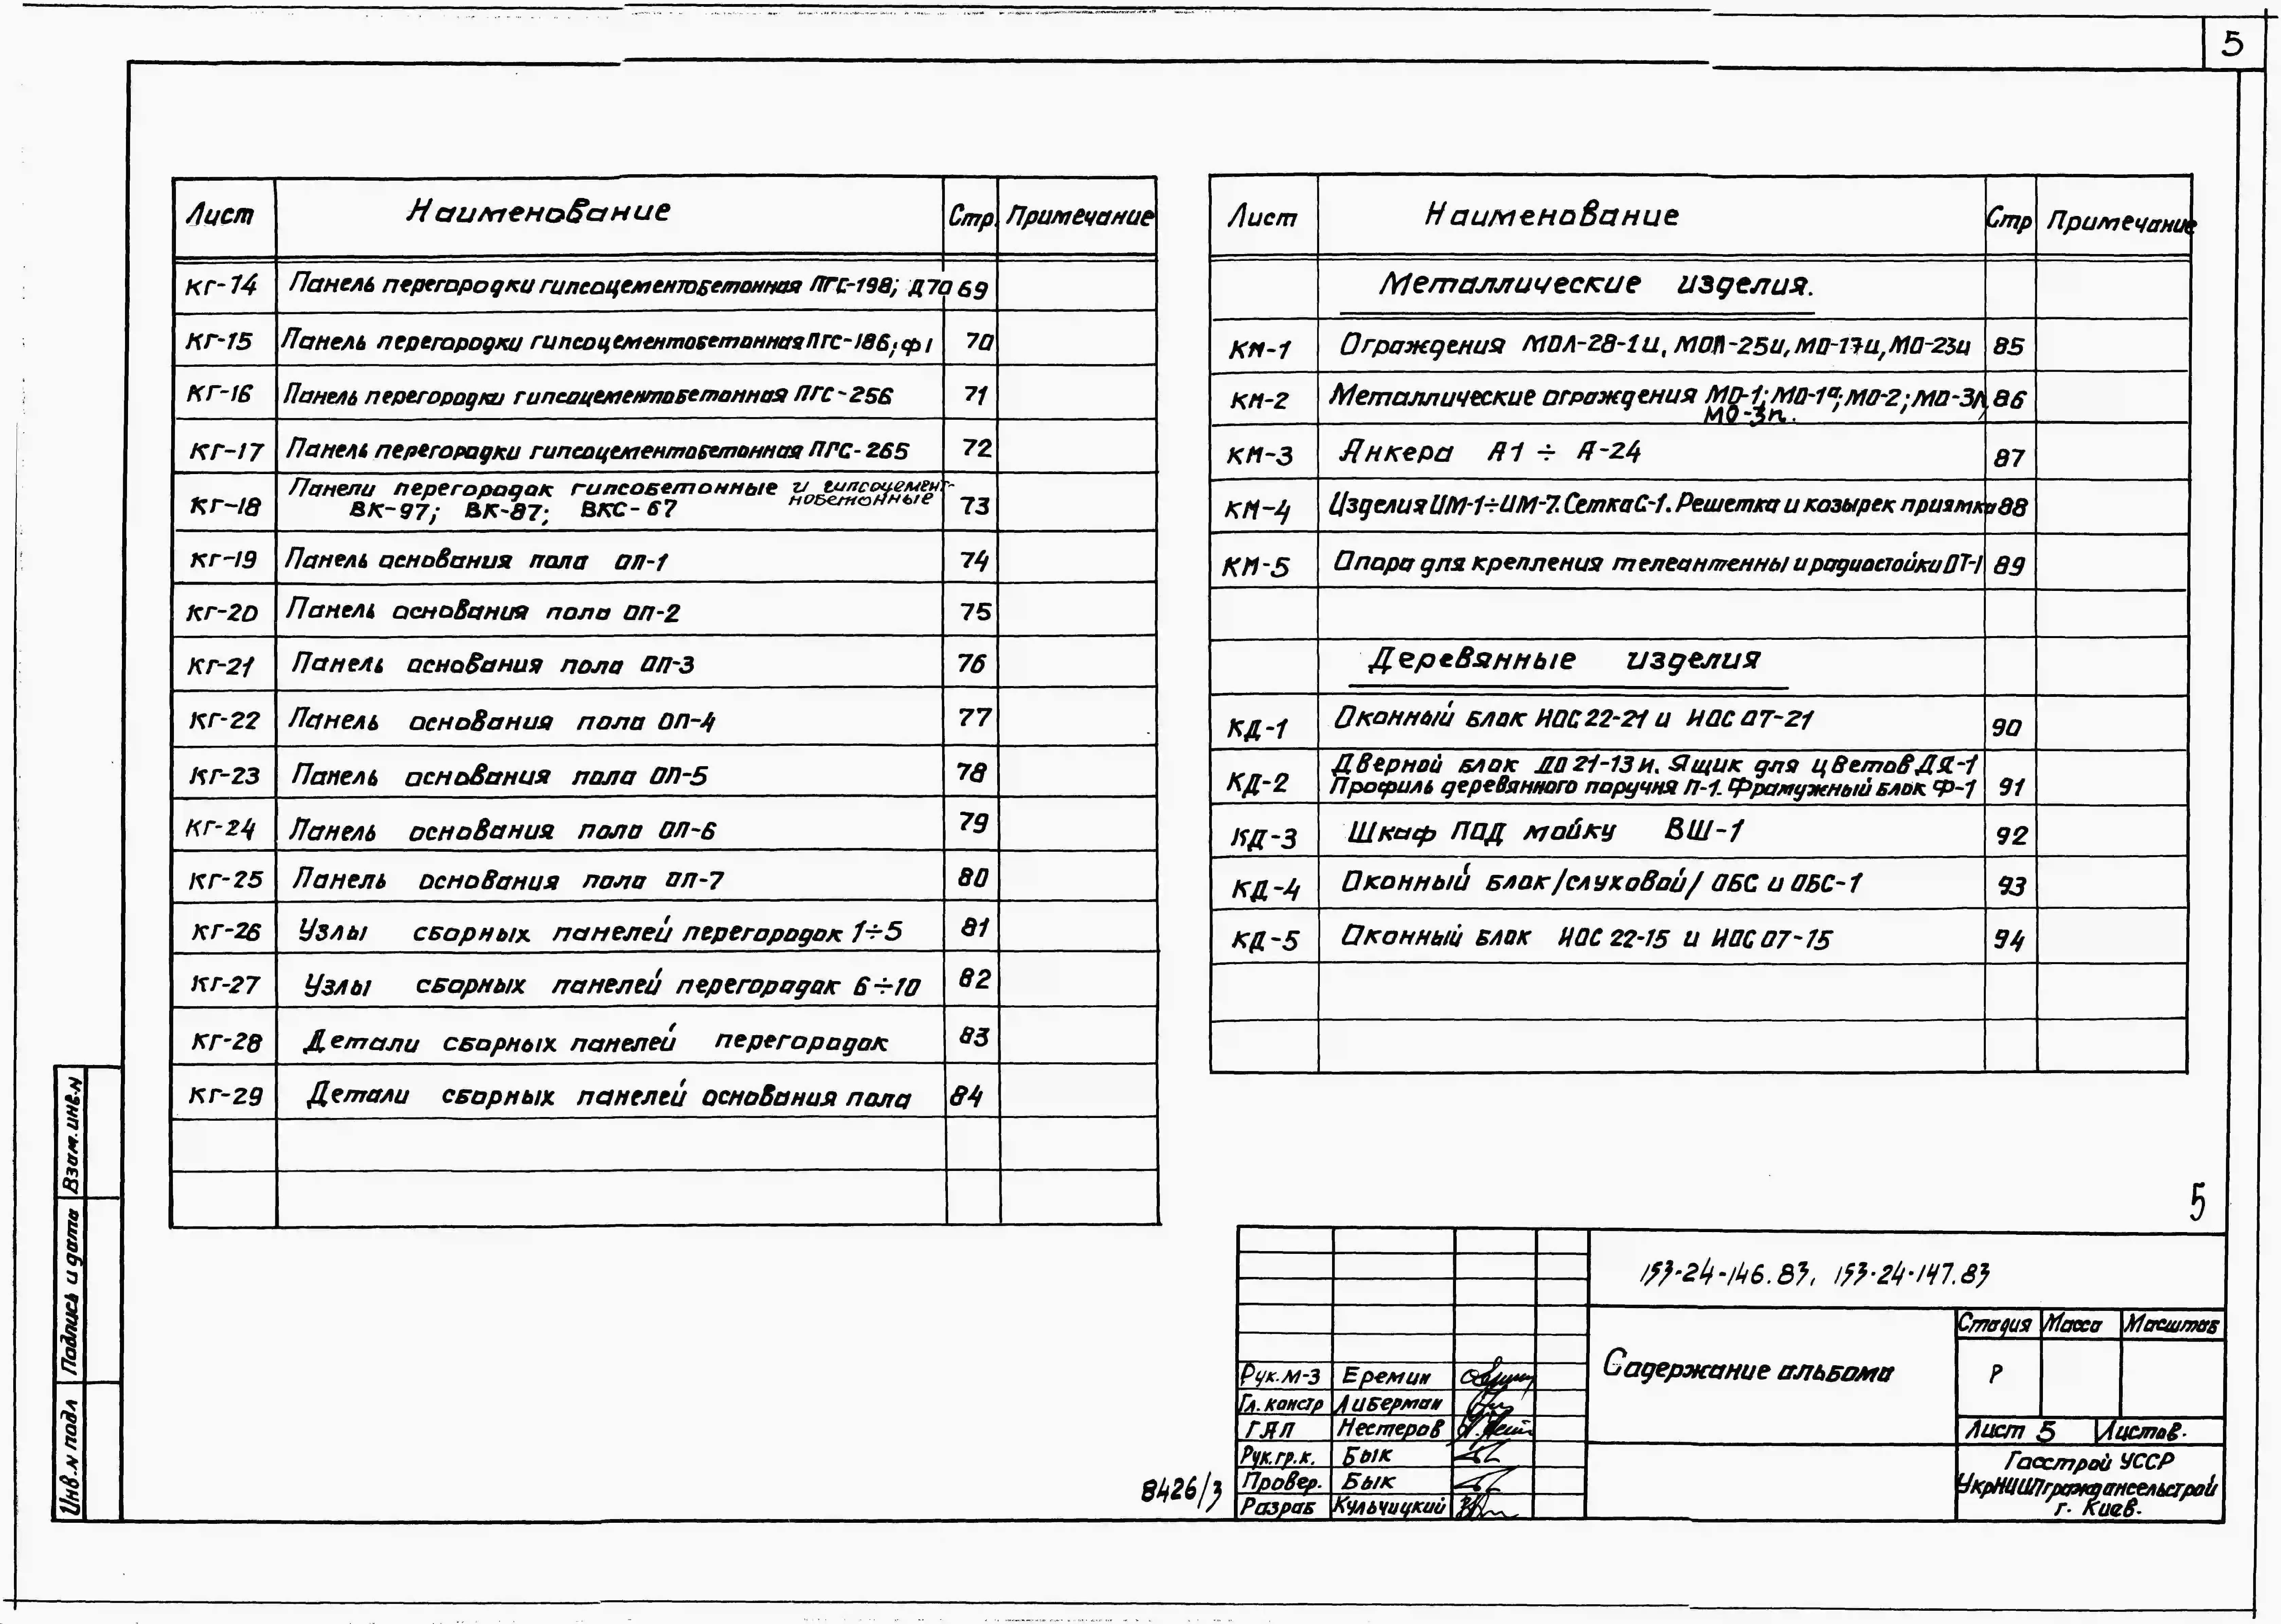 5
Лист Наименование Стр. Примечание
КГ-14 Панель перегородки гипсоцементобетонная ПГС-198; Д70 69
КГ-15 Панель перегородки гипсоцементобетонная ПГС-186; ф1 70
КГ-16 Панель перегородки гипсоцементобетонная ПГС-256 71
КГ-17 Панель перегородки гипсоцементобетонная ПГС-265 72
КГ-18 Панели перегородок гипсобетонные и гипсоцемент-
нобетонные
ВК-97; ВК-87; ВКС-67 73
КГ-19 Панель основания пола ОП-1 74
КГ-20 Панель основания пола ОП-2 75
КГ-21 Панель основания пола ОП-3 76
КГ-22 Панель основания пола ОП-4 77
КГ-23 Панель основания пола ОП-5 78
КГ-24 Панель основания пола ОП-6 79
КГ-25 Панель основания пола ОП-7 80
КГ-26 Узлы сборных панелей перегородок 1÷5 81
КГ-27 Узлы сборных панелей перегородок 6÷10 82
КГ-28 Детали сборных панелей перегородок 83
КГ-29 Детали сборных панелей основания пола 84
Лист Наименование Стр Примечание
Металлические изделия.
КМ-1 Ограждения МОЛ-28-1и, МОП-25и, МО-17и, МО-23и 85
КМ-2 Металлические ограждения МО-1; МО-1а; МО-2; МО-3л 86
МО-3п.
КМ-3 Анкера А1 ÷ А-24 87
КМ-4 Изделия ИМ-1÷ИМ-7. Сетка С-1. Решетка и козырек приямка 88
КМ-5 Опора для крепления телеантенны и радиостойки ОТ-1 89
Деревянные изделия
КД-1 Оконный блок НОС 22-21 и НОС 07-21 90
КД-2 Дверной блок ДО 21-13и. Ящик для цветов ДЯ-1
Профиль деревянного поручня П-1. Фрамужный блок Ф-1 91
КД-3 Шкаф под мойку ВШ-1 92
КД-4 Оконный блок /слуховой/ ОБС и ОБС-1 93
КД-5 Оконный блок НОС 22-15 и НОС 07-15 94
5
153-24-146.83, 153-24-147.83
Содержание альбома
Стадия Масса Масштаб
Р
Лист 5 Листов.
Госстрой УССР
УкрНИИПграждансельстрой
г. Киев.
Рук. М-3 Еремин
Гл. констр Либерман
ГАП Нестеров
Рук. гр. к. Бык
Провер. Бык
Разраб Кульчицкий
8426/3
Взам. инв. N
Подпись и дата
Инв. N подл